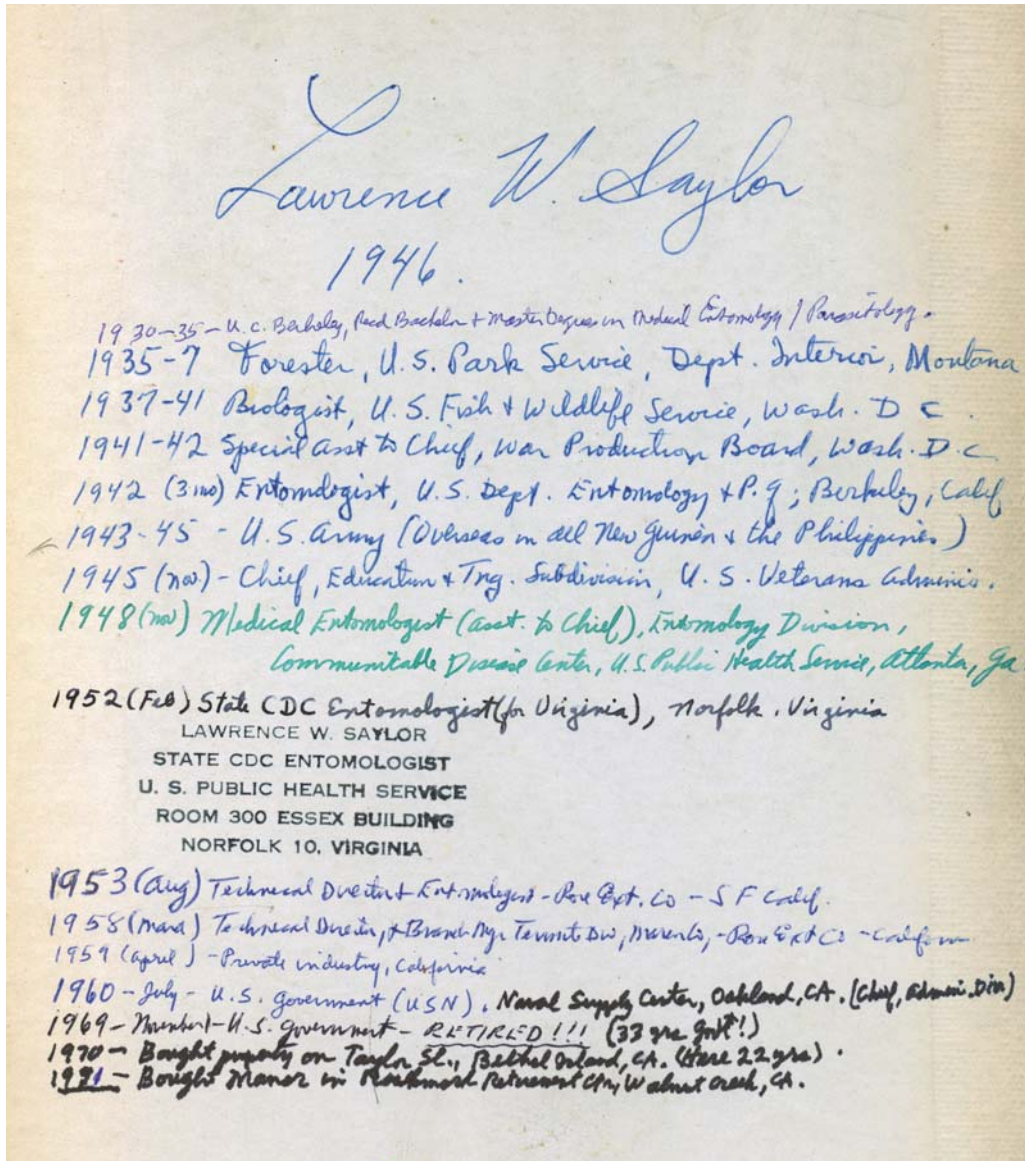 Lawrence W. Saylor
1946.
1930-35 - U.C. Berkeley, Recd Bachelor + Master Degrees in Medical Entomology / Parasitology.
1935-7 Forester, U.S. Park Service, Dept. Interior, Montana
1937-41 Biologist, U.S. Fish & Wildlife Service, Wash. D C.
1941-42 Special asst to Chief, War Production Board, Wash. D.C
1942 (3 mo) Entomologist, U.S. Dept. Entomology & P.Q; Berkeley, Calif
1943-45 - U.S. Army (Overseas in all New Guinea & the Philippines)
1945 (nov) - Chief, Education & Tng. Subdivision, U.S. Veterans Adminis.
1948 (nov) Medical Entomologist (asst. to Chief), Entomology Division,
Communicable Disease Center, U.S. Public Health Service, Atlanta, Ga
1952 (Feb) State CDC Entomologist (for Virginia), Norfolk. Virginia
LAWRENCE W. SAYLOR
STATE CDC ENTOMOLOGIST
U. S. PUBLIC HEALTH SERVICE
ROOM 300 ESSEX BUILDING
NORFOLK 10, VIRGINIA
1953 (Aug) Technical Director & Entomologist - Rose Ext. Co - S F Calif.
1958 (Mar) Technical Director, & Branch Mgr Termite Div, Marin Co, - Rose Ext Co - California
1959 (april) - Private industry, California
1960 - July - U.S. Government (USN). Naval Supply Center, Oakland, CA. (Chief, Admin. Div)
1969 - November - U.S. Government - RETIRED!!! (33 yrs Gov't!)
1970 - Bought property on Taylor St., Bethel Island, CA. (Here 22 yrs).
1991 - Bought Manor in Rossmoor Retirement Cty, Walnut Creek, CA.